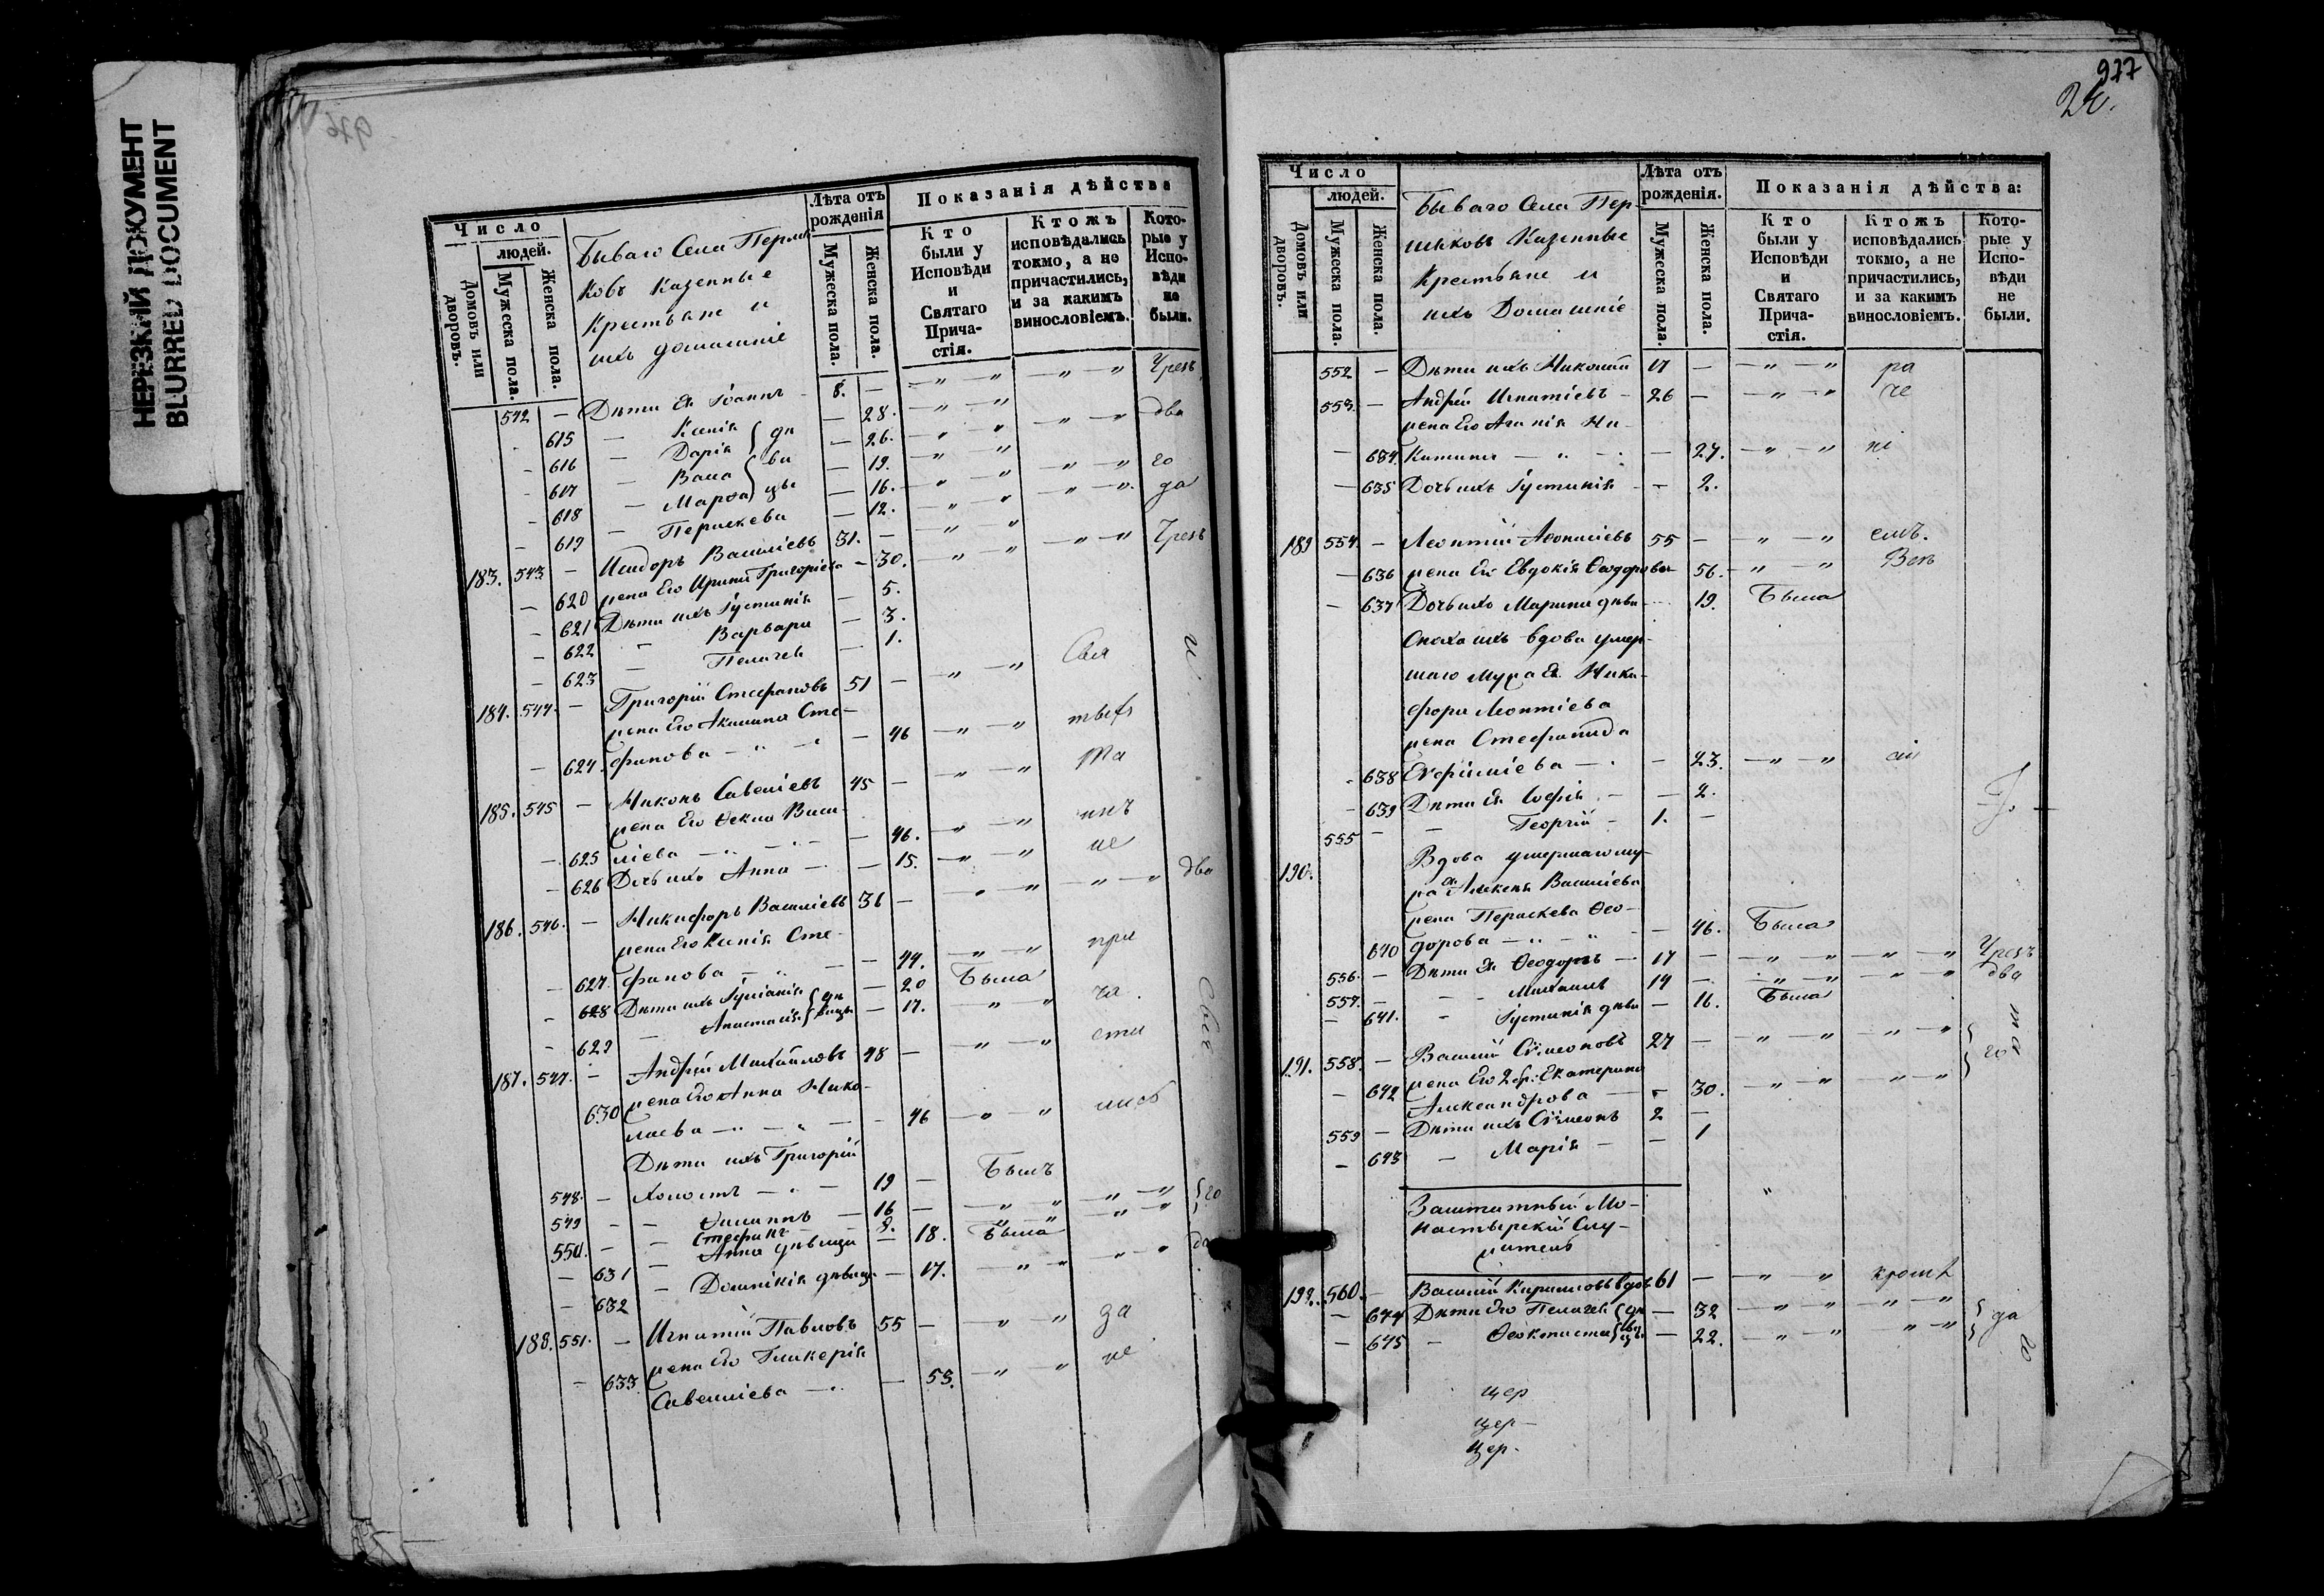 НЕРЕЗКИЙ ДОКУМЕНТ
BLURRED DOCUMENT
976
Число
людей.
Домовъ или дворовъ.
Мужеска пола.
Женска пола.
Бываго Села Перши
ковъ Казенные
Крестьяне и
ихъ домашніе
Лѣта отъ рожденія
Мужеска пола.
Женска пола.
Показанія дѣйства
Кто были у Исповѣди и Святаго Причастія.
Ктожъ исповѣдались токмо, а не причастились, и за какимъ винословіемъ.
Которые у Исповѣди не были.
542 — Дѣти Ея Іоаннъ 8. — —„—„ —„—„ Чрезъ
615 — Ксенія — 28. —„—„
616 — Дарія — 26. —„—„ —„—„ два
617 — Васса — 19. —„—„
618 — Марѳа — 16. —„—„ —„—„ го
619 — Параскева — 12. —„—„ —„—„ да
183. 543 — Исидоръ Василіевъ 31. — —„—„ —„—„ Чрезъ
620 жена Его Ирина Григоріева — 30. —„—„
621 Дѣти ихъ Іустинія — 5.
622 — Варвара — 3.
623 — Пелагея — 1.
184. 544. — Григорій Стефановъ 51 — —„—„
жена Его Акилина Сте-
624. фанова — 46 —„—„
185. 545 — Никонъ Савеліевъ 45 — —„—„ та
жена Его Ѳекла Васи-
625 ліева — 46. —„—„ инъ
626 Дочь ихъ Анна — 15. —„—„ не
186. 546. — Никифоръ Василіевъ 36 — —„—„ —„—„ два
жена Его Ксенія Сте-
627. фанова — 44. —„—„ при
628 Дѣти ихъ Іуліанія — 20 Была
629 — Анастасія — 17. „ „ ча
187. 547. — Андрей Михайловъ 48 — —„—„ сти
630 жена Его Анна Нико-
лаева — 46 —„—„
Дѣти ихъ Григорій
548. — холостъ — 19 — Былъ
549 — 16 — —„—„ —„—„ го
550. — Стефанъ — 8. —„—„ —„—„
631 — Анна дѣвица — 18. Была
632 — Домникія дѣвиц. — 17. —„—„ —„—„ да
188. 551. — Игнатій Павловъ 55 — —„—„ за
633 жена Его Гликерія
Савеліева — 53. —„—„ не
977
Число
людей.
Домовъ или дворовъ.
Мужеска пола.
Женска пола.
Бываго Села Пер-
шиковъ Казенные
Крестьяне и
ихъ Домашніе
Лѣта отъ рожденія.
Мужеска пола.
Женска пола.
Показанія дѣйства:
Кто были у Исповѣди и Святаго Причастія.
Ктожъ исповѣдались токмо, а не причастились, и за какимъ винословіемъ.
Которые у Исповѣди не были.
552 — Дѣти ихъ Николай 17 — —„—„ ра
553. — Андрей Игнатіевъ — 26 — —„—„ че
жена Его Агапія Ни-
— 634. китина — 27. —„—„ ні
— 635 Дочь ихъ Іустинія — 2.
189 554. — Леонтій Аѳонасіевъ 55 — —„—„ емъ.
— 636 жена Его Евдокія Ѳеодорова 56. —„—„
— 637 Дочь ихъ Марина дѣви — 19. Была
Сноха ихъ вдова умер-
шаго мужа Ея Ники-
фора Леонтіева
жена Стефанида
638 Евфиміева — 23. —„—„
639 Дѣти Ея Софія — 2.
555 — Георгій — 1. —
190. Вдова умершаго му-
жа Алексея Василіева
жена Параскева Ѳео-
640 дорова — 46. Была
556. — Дѣти Ея Ѳеодоръ — 17 — —„—„ —„—„ Чрезъ
557. — Михаилъ 14 — —„—„ —„—„ два
— 641. — Іустинія дѣви — 16. Была
191. 558. — Василій Сѵмеоновъ 27 — —„—„ —„—„ го
— 642 жена Его 2 бр: Екатерина
Александрова — 30. —„—„ —„—„
559 — Дѣти ихъ Сѵмеонъ 2 —
— 643 — Марія — 1
Заштатный Мо-
настырскій Слу-
житель
192. 560. — Василій Кириловъ вдовъ 61 — —„—„ кромѣ
— 644 Дѣти Его Пелагея — 32 —„—„ —„—„
— 645 — Ѳеоктиста — 22. —„—„ —„—„ да
цер
цер-
цер.